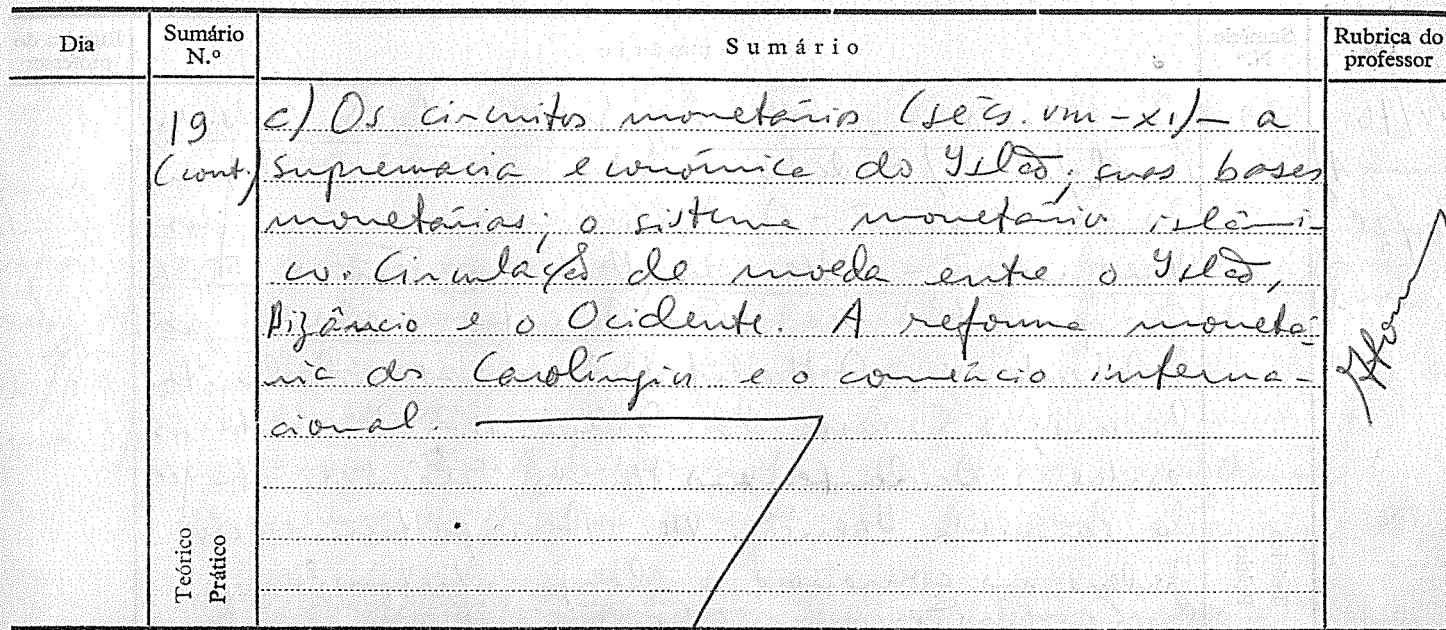 Dia Sumário N.º Sumário Rubrica do professor
19 c) Os circuitos monetários (sécs. VIII-XI) - a
(cont.) supremacia económica do Islão; suas bases
monetárias; o sistema monetário islâmi-
co. Circulação de moeda entre o Islão,
Bizâncio e o Ocidente. A reforma monetá-
ria dos Carolíngios e o comércio interna-
cional.
Teórico
Prático